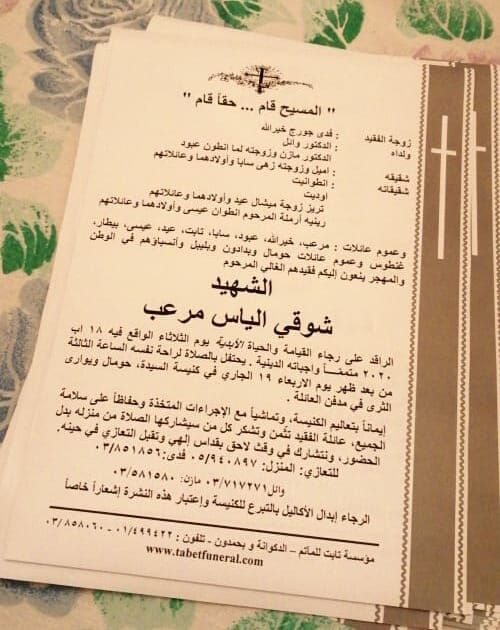 " المسيح قام ... حقاً قام "
زوجة الفقيد : فدى جورج خيرالله
ولداه : الدكتور وائل
الدكتور مازن وزوجته لما انطون عبود
شقيقه : اميل وزوجته زهى سابا وأولادهما وعائلاتهم
شقيقاته : انطوانيت
اوديت
تريز زوجة ميشال عيد وأولادهما وعائلاتهم
رينيه أرملة المرحوم انطوان عيسى وأولادهما وعائلاتهم
وعموم عائلات : مرعب، خيرالله، عبود، سابا، تابت، عيد، عيسى، بيطار،
غنطوس وعموم عائلات حومال وبدادون وبليبل وأنسباؤهم في الوطن
والمهجر ينعون إليكم فقيدهم الغالي المرحوم
الشهيد
شوقي الياس مرعب
الراقد على رجاء القيامة والحياة الأبدية يوم الثلاثاء الواقع فيه ١٨ اب
٢٠٢٠ متممًا واجباته الدينية . يحتفل بالصلاة لراحة نفسه الساعة الثالثة
من بعد ظهر يوم الاربعاء ١٩ الجاري في كنيسة السيدة، حومال ويوارى
الثرى في مدفن العائلة .
إيماناً بتعاليم الكنيسة، وتماشياً مع الإجراءات المتخذة وحفاظاً على سلامة
الجميع، عائلة الفقيد تثمن وتشكر كل من سيشاركها الصلاة من منزله بدل
الحضور، ونتشارك في وقت لاحق بقداس إلهي وتقبل التعازي في حينه.
للتعازي: المنزل: ٠٥/٩٤٠٨٩٧ فدى:٠٣/٨٥١٨٥٦
وائل:٠٣/٧١٧٢٧١ مازن: ٠٣/٥٨١٥٨٠
الرجاء إبدال الأكاليل بالتبرع للكنيسة وإعتبار هذه النشرة إشعاراً خاصاً
مؤسسة تابت للمآتم - الدكوانة و بحمدون - تلفون : ٠١/٤٩٩٤٢٢ - ٠٣/٨٥٨٠٦٠
www.tabetfuneral.com